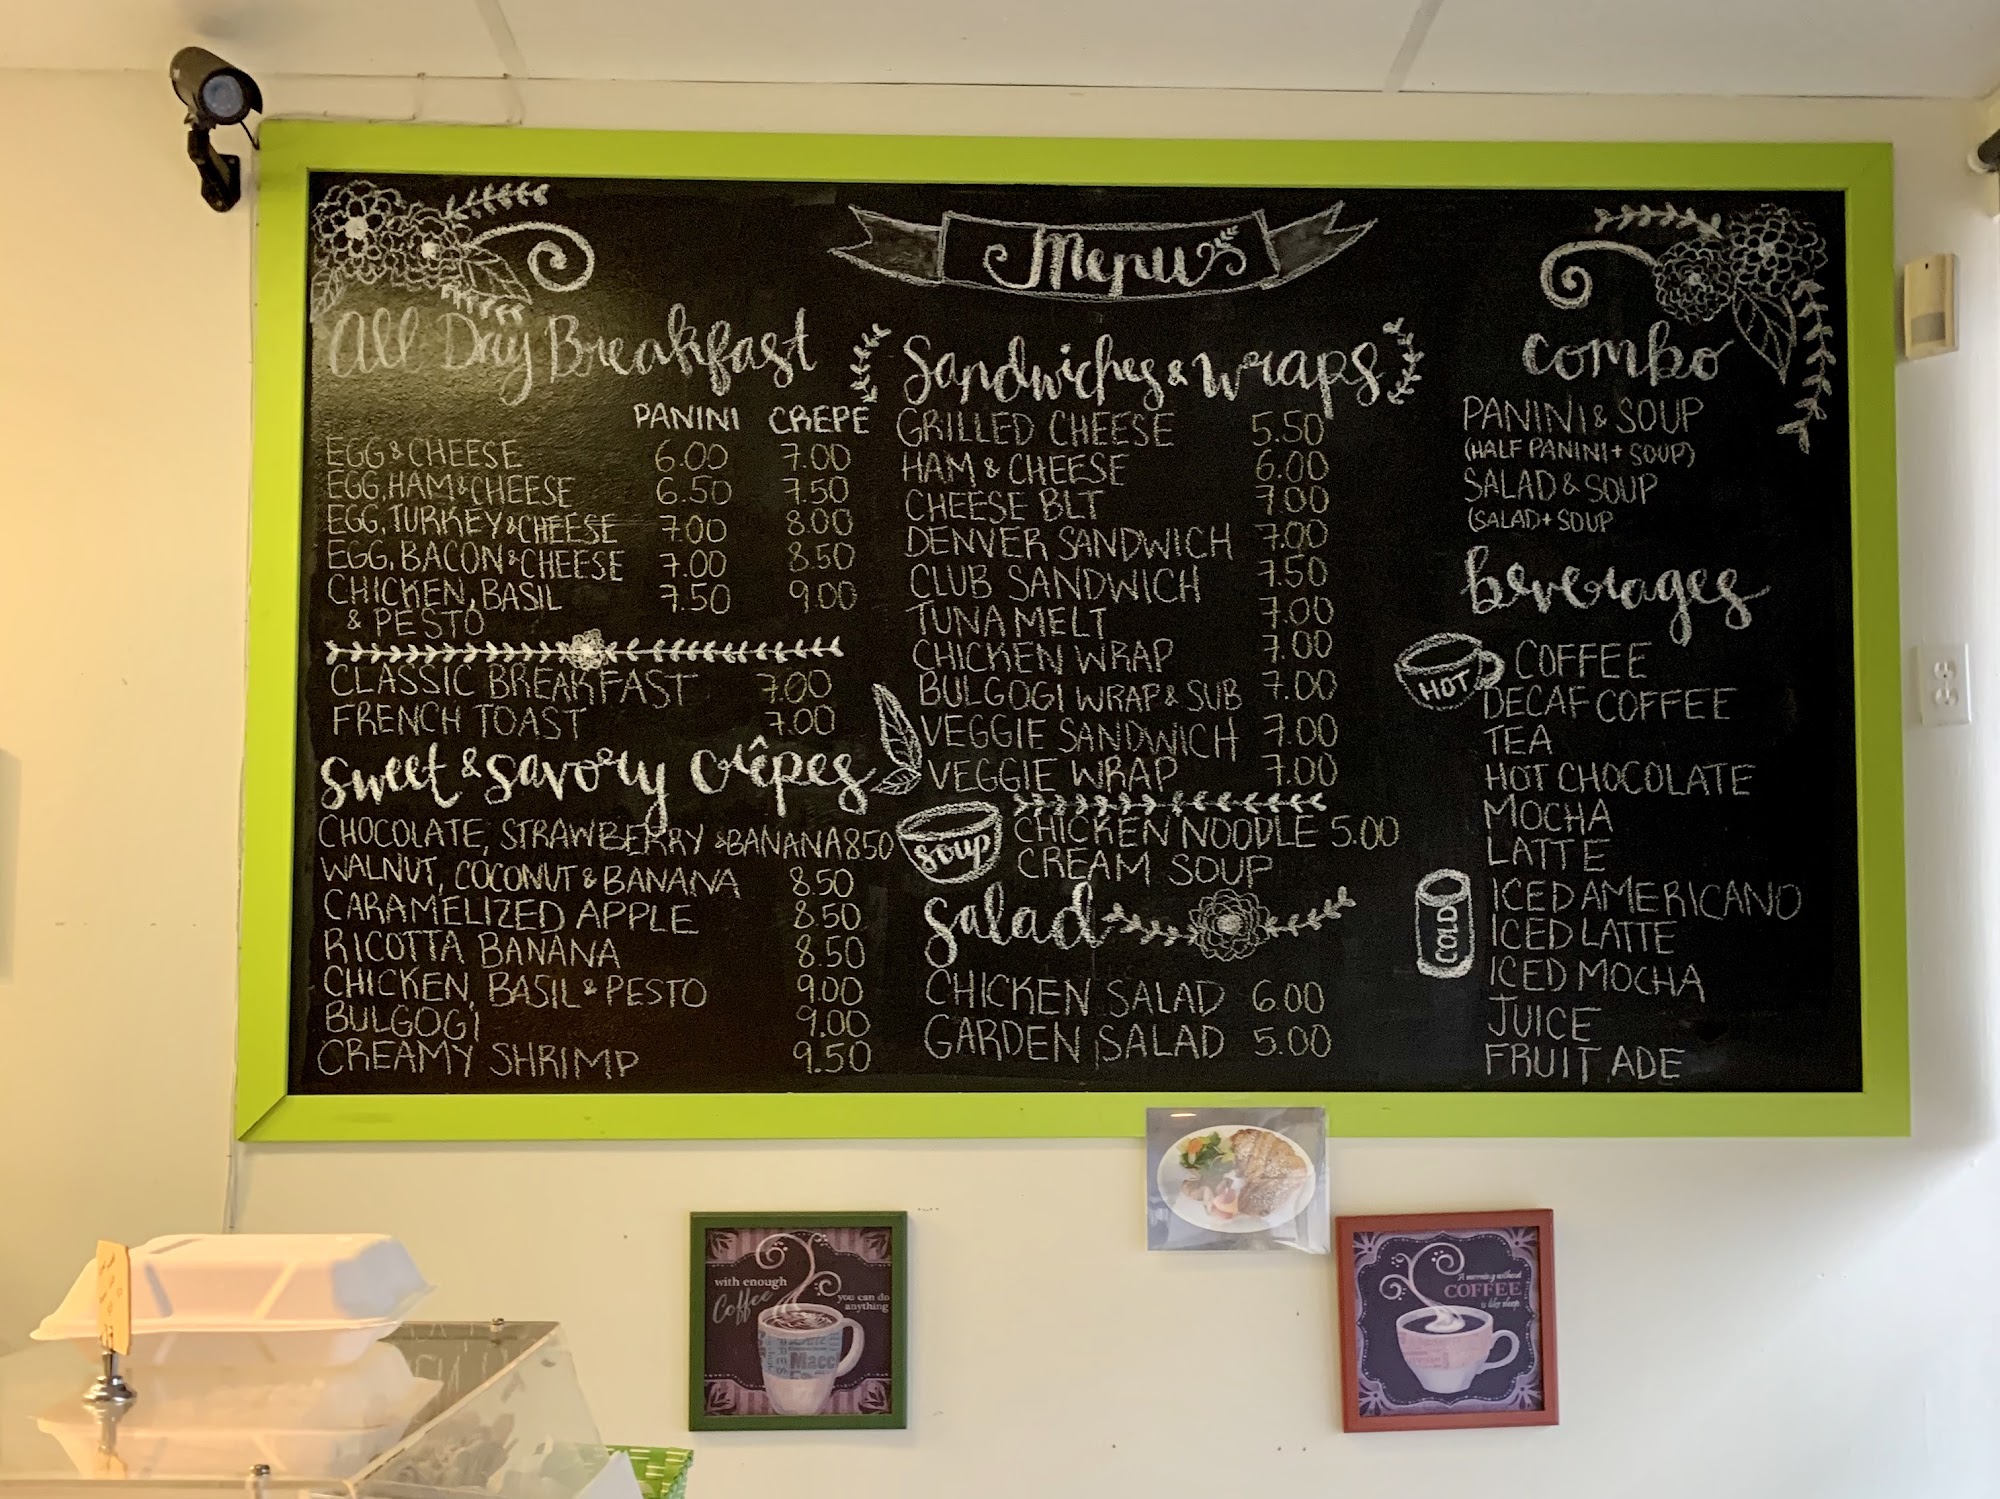 Menu
All Day Breakfast
PANINI CREPE
EGG & CHEESE 6.00 7.00
EGG, HAM & CHEESE 6.50 7.50
EGG, TURKEY & CHEESE 7.00 8.00
EGG, BACON & CHEESE 7.00 8.50
CHICKEN, BASIL 7.50 9.00
& PESTO
CLASSIC BREAKFAST 7.00
FRENCH TOAST 7.00
Sweet & Savory Crêpes
CHOCOLATE, STRAWBERRY & BANANA 8.50
WALNUT, COCONUT & BANANA 8.50
CARAMELIZED APPLE 8.50
RICOTTA BANANA 8.50
CHICKEN, BASIL & PESTO 9.00
BULGOGI 9.00
CREAMY SHRIMP 9.50
Sandwiches & Wraps
GRILLED CHEESE 5.50
HAM & CHEESE 6.00
CHEESE BLT 7.00
DENVER SANDWICH 7.00
CLUB SANDWICH 7.50
TUNA MELT 7.00
CHICKEN WRAP 7.00
BULGOGI WRAP & SUB 7.00
VEGGIE SANDWICH 7.00
VEGGIE WRAP 7.00
Soup
CHICKEN NOODLE 5.00
CREAM SOUP
Salad
CHICKEN SALAD 6.00
GARDEN SALAD 5.00
Combo
PANINI & SOUP
(HALF PANINI + SOUP)
SALAD & SOUP
(SALAD + SOUP
beverages
HOT
COFFEE
DECAF COFFEE
TEA
HOT CHOCOLATE
MOCHA
LATTE
COLD
ICED AMERICANO
ICED LATTE
ICED MOCHA
JUICE
FRUIT ADE
with enough
Coffee
you can do
anything
Macc
A morning without
COFFEE
is like sleep.